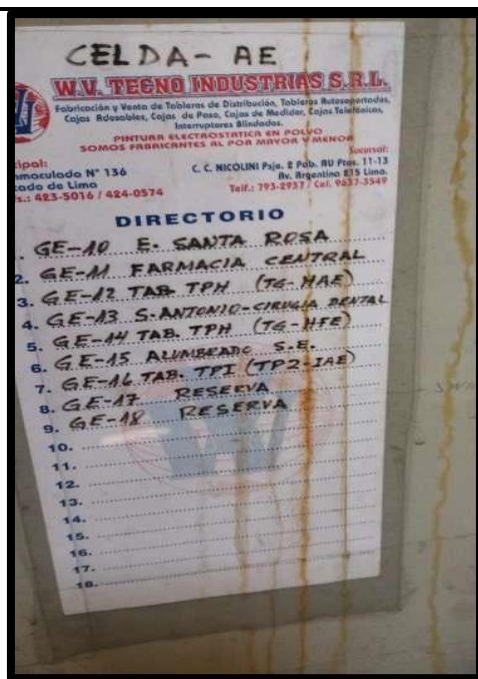 CELDA- AE
W.V. TECNO INDUSTRIAS S.R.L.
Fabricación y Venta de Tableros de Distribución, Tableros Autosoportados,
Cajas Adosables, Cajas de Paso, Cajas de Medidor, Cajas Telefónicas,
Interruptores Blindados.
PINTURA ELECTROSTATICA EN POLVO
SOMOS FABRICANTES AL POR MAYOR Y MENOR
cipal:
nmaculada N° 136
cado de Lima
s.: 423-5016 / 424-0574
Sucursal:
C. C. NICOLINI Psje. 2 Pab. AU Ptos. 11-13
Av. Argentina 215 Lima.
Telf.: 793-2937 / Cel. 9637-3549
DIRECTORIO
1. GE-10 E. SANTA ROSA
2. GE-11 FARMACIA CENTRAL
3. GE-12 TAB. TPH (TG-HAE)
4. GE-13 S. ANTONIO-CIRUGIA DENTAL
5. GE-14 TAB. TPH (TG-HFE)
6. GE-15 ALUMBRADO S.E.
7. GE-16 TAB. TPI (TP2-IAE)
8. GE-17 RESERVA
9. GE-18 RESERVA
10.
11.
12.
13.
14.
15.
16.
17.
18.